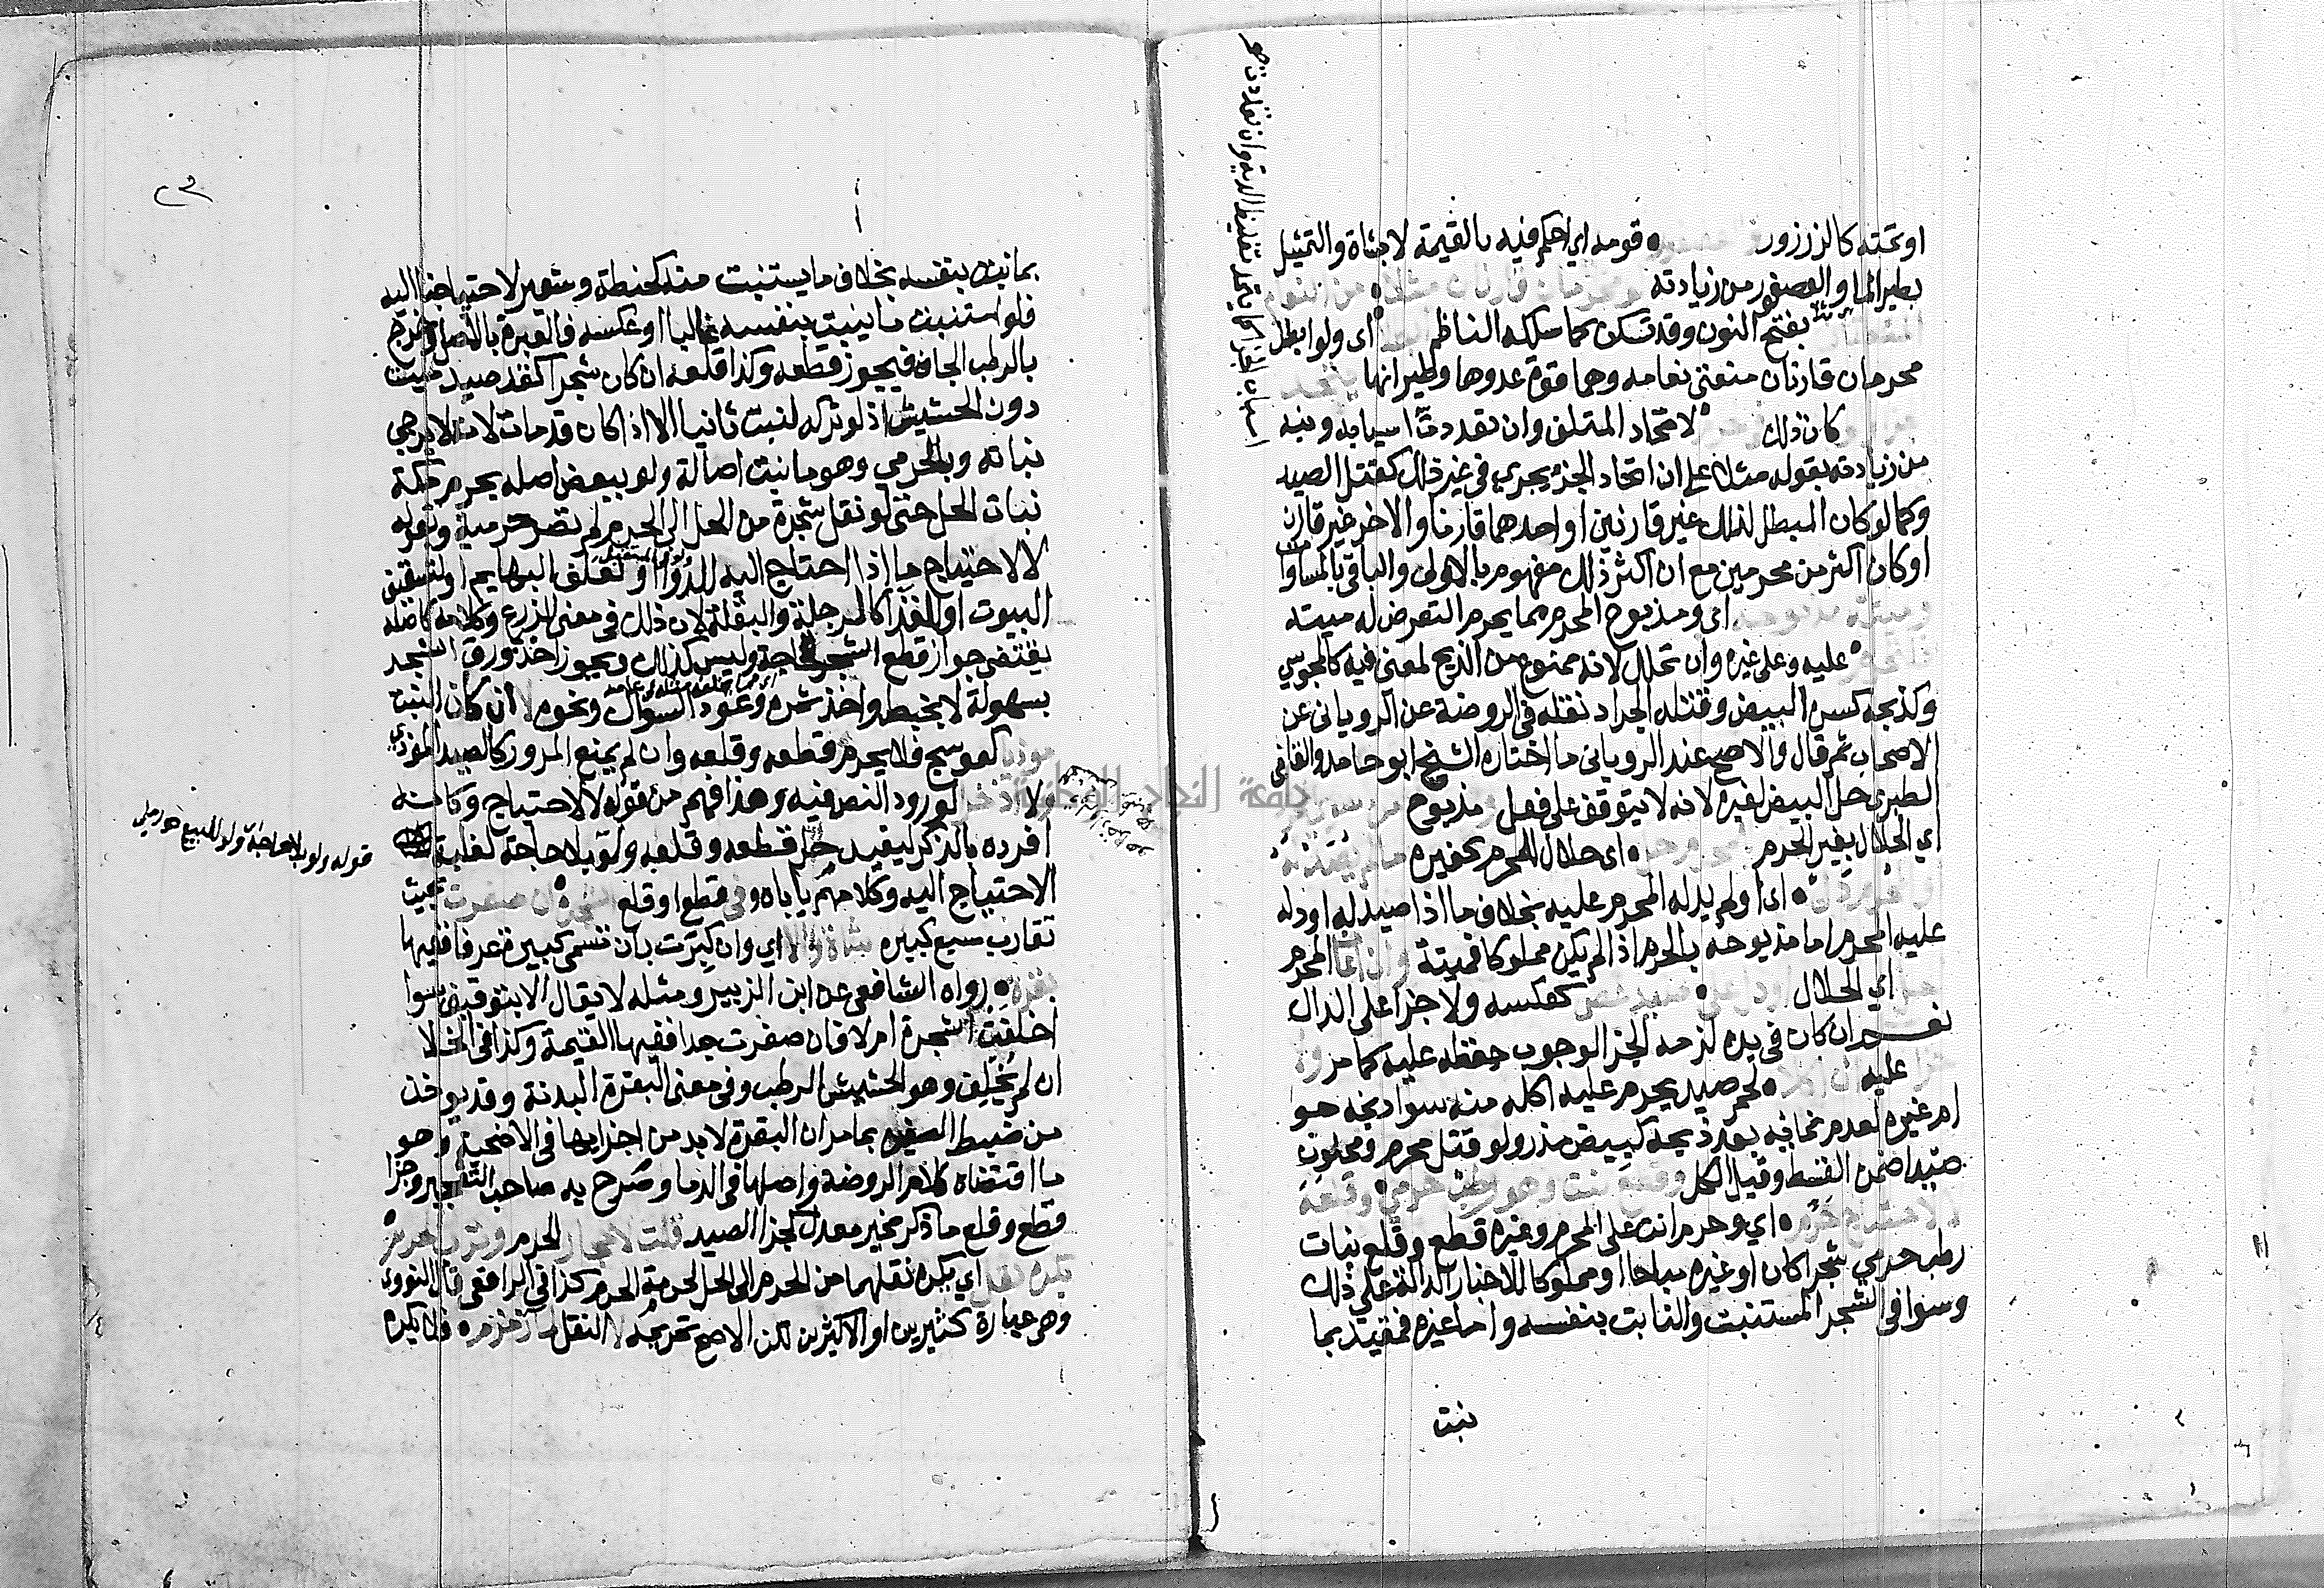 او تحته كالزرزور قومه اي احكم فيه بالقيمة لا بشاة والتمثيل
بطير الماء والعصفور من زيادته ومحرمان قارنان مثلا من النعام
بفتح النون وقد تسكن كما سلكه الناظم اي ولو ابطل
محرمان قارنان منعتي نعامه وهما قوة عدوها وطيرانها يتحد
كان ذلك لاتحاد المتلف وان تعددت اسبابه ونبه
من زيادته بقوله مثلا على ان اتحاد الجزا يجري في غير ذلك كقتل الصيد
وكما لو كان المبطل لذلك غير قارنين او احدهما قارنا والاخر غير قارن
او كان اكثر من محرمين مع ان اكثر ذلك مفهوم بالاولى والباقي بالمساواة
وميتة مذبوحه اي ومذبوح المحرم مما يحرم التعرض له ميته
عليه وعلى غيره وان تحلل لانه ممنوع من الذبح لمعنى فيه كالمجوسي
وكذبحه كسره البيض وقتله الجراد نقله في الروضة عن الروياني عن
الاصحاب ثم قال والاصح عند الروياني ما اختاره الشيخ ابو حامد والقاضي
الطبري حل البيض لغيره لانه لا يتوقف على فعل مذبوح
اي الحلال بغير الحرم اي حلال للمحرم كغيره ما لم يصد له
اي او لم يدله المحرم عليه بخلاف ما اذا صيد له او دله
عليه المحرم اما مذبوحه بالحرم اذا لم يكن مملوكا فميتة وان المحرم
اي الحلال كعكسه ولا جزا على الدال
نعم ان كان في يده لزمه الجزا لوجوب حفظه عليه كما مر ولا
جزا عليه ان اكلا لحم صيد يحرم عليه اكله منه سوا ذبحه هو
ام غيره لعدم نمائه بعد ذبحه كبيض مذر ولو قتل محرم ومحلون
صيدا ضمن القسط وقيل الكل وقطع نبت وهو رطب حرمي وقلعه
لا لاحتياج حرم اي وحرم اند على المحرم وغيره قطع وقلع نبات
رطب حرمي شجرا كان او غيره مباحا او مملوكا للاخبار الدالة على ذلك
وسوا في الشجر المستنبت والنابت بنفسه واما غيره فمقيد بما
نبت
اسبابه
بما نبت بنفسه بخلاف ما يستنبت منه كحنطة وشعير لاحتياجنا اليه
فلو استنبت ما ينبت بنفسه غالبا او عكسه فالعبرة بالاصل وخرج
بالرطب الجاف فيجوز قطعه وكذا قلعه ان كان شجرا كقد صيد ميت
دون الحشيش اذ لو تركه لنبت ثانيا الا اذا كان قد مات لانه لا يرجى
نباته وبالحرمي وهو ما نبت اصالة ولو ببعض اصله بحرم مكة
نبات الحل حتى لو نقل شجرة من الحل الى الحرم لم تصر حرمية وبقوله
لا لاحتياج ما اذا احتاج اليه للدوا او لعلف البهايم او لتسقيف
البيوت او للغذا كالرجلة والبقلة لان ذلك في معنى الزرع وكلامه كاصله
يقتضي جواز قطع الشجر لحاجة وليس كذلك ويجوز اخذ ورق الشجر
بسهولة لا بخبط واخذ ثمره وعود السواك ونحوه لا ان كان النبت
موذيا كعوسج فلا يحرم قطعه وقلعه وان لم يمنع المرور كالصيد الموذي
ولا اذخر لورود النص فيه وهذا فهم من قوله لا لاحتياج وكانه
افرده بالذكر ليفيد حل قطعه وقلعه ولو بلا حاجة لغلبة
الاحتياج اليه وكلامهم ياباه وفي قطع او قلع الشجرة ان صغرت بحيث
تقارب سبع كبيره شاة والا اي وان كبرت بان تسمى كبيرة عرفا ففيها
بقرة رواه الشافعي عن ابن الزبير ومثله لا يقال الا بتوقيف سوا
اخلفت الشجرة ام لا فان صغرت جدا ففيها القيمة وكذا في الخلا
ان لم يخلف وهو الحشيش الرطب وفي معنى البقرة البدنة وقد يوخذ
من ضبط الصغيرة بما مر ان البقرة لا بد من اجزايها في الاضحية وهو
ما اقتضاه كلام الروضة واصلها في الدما وصرح به صاحب التعجيز وجزا
قطع وقلع ما ذكر مخير معدل كجزا الصيد قلت لاحجار الحرم وترب الحرم
يكره نقل اي يكره نقلهما من الحرم الى الحل لحرمة الحرم كذا في الرافعي قال النووي
وهي عبارة كثيرين او الاكثرين لكن الاصح تحريمه لا النقل ما زمزم فلا يكره
قوله ولو بلا حاجة ولو للبيع رملي